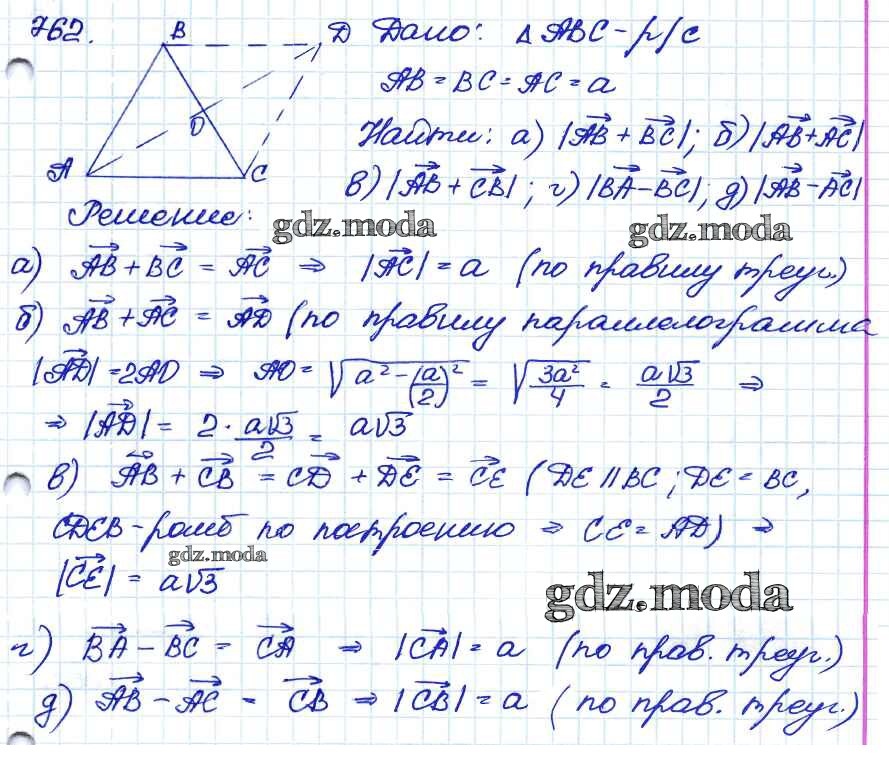 762. B D Дано: Δ ABC - р/с
AB = BC = AC = a
O
Найти: а) |AB + BC|; б) |AB + AC|
A C
в) |AB + CB|; г) |BA - BC|; д) |AB - AC|
Решение:
gdz.moda gdz.moda
а) AB + BC = AC ⇒ |AC| = a (по правилу треуг.)
б) AB + AC = AD (по правилу параллелограмма
|AD| = 2AO ⇒ AO = √(a² - (a/2)²) = √(3a²/4) = a√3/2 ⇒
⇒ |AD| = 2 · a√3/2 = a√3
в) AB + CB = CD + DE = CE (DE || BC; DE = BC,
CDEB - ромб по построению ⇒ CE = AD) ⇒
gdz.moda
|CE| = a√3
gdz.moda
г) BA - BC = CA ⇒ |CA| = a (по прав. треуг.)
д) AB - AC = CB ⇒ |CB| = a (по прав. треуг.)